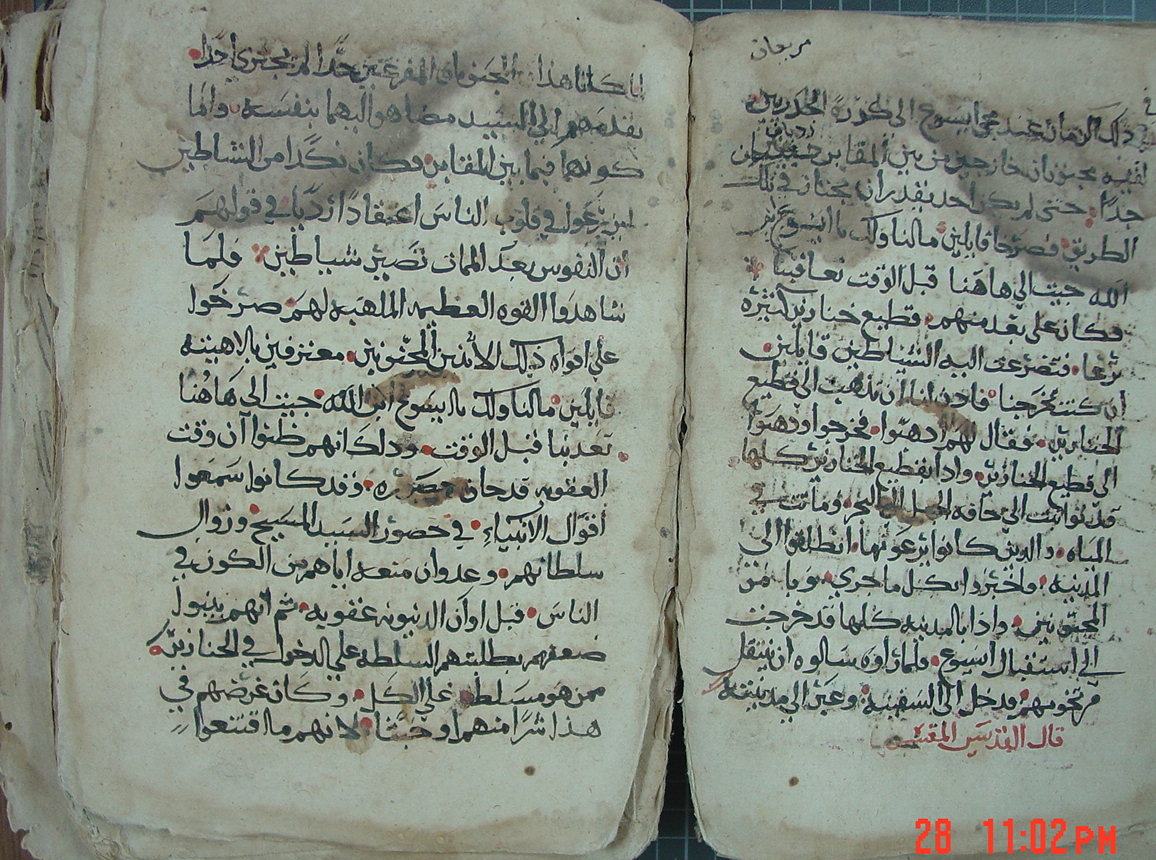 في ذلك الزمان عند مجي ايسوع الى كورة الجدريين
لقيه مجنونان خارجين من بين المقابر
جدا حتى لم يكن احد يقدر ان يجتاز في تلك
الطريق فصرخا قايلين ما لنا ولك يا ايسوع ابن
الله جيت الى هاهنا قبل الوقت تعاقبنا
فكان على بعد منهم قطيع خنازير كثيره
ترعا فتضرعت اليه الشياطين قايلين
ان كنت تخرجنا فاذن لنا ان نذهب الى قطيع
الخنازير فقال لهم اذهبوا فخرجوا وذهبوا
الى قطيع الخنازير واذا بقطيع الخنازير كلها
قد تواثبت الى حافه البحر وماتت في
المياه والذين كانوا يرعونها انطلقوا الى
المدينه واخبروا بكل ما جري وبامر
المجنونين واذا بالمدينه كلها قد خرجت
الى استقبال ايسوع فلما راوه سالوه ان ينتقل
من تخومهم فدخل الى السفينه وعبر الى مدينته
قال القديس
كانا هذان المجنونان المفرعين جدا لم يجتري احدا
يقدمهم الى السيد مضا هو اليهما بنفسه واما
كونهما فيما بين المقابر فكان نكدا من الشياطين
في قلوب الناس اعتقادا رديا في قولهم
ان النفوس بعد الممات تصير شياطين فلما
شاهدوا القوه العظيمه الملهبه لهم صرخوا
على افواه ذلك الاثنين المجنونين معترفين بالاهيته
قايلين ما لنا ولك يا ايسوع ابن الله جيت الى هاهنا
تعذبنا قبل الوقت وذلك انهم ظنوا ان وقت
العقوبه قد حان وقد كانوا سمعوا
اقوال الانبياء في حضور السيد المسيح وزوال
سلطانهم وعدوا ان منعه اياهم من الكون في
الناس قبل اوان الدينونه عقوبه ثم انهم
ضعفهم بطلبتهم السلطه علي الدخول في الخنازير
ممن هو مسلط علي الكل وكان غرضهم في
هذا شرا منهم وخبثا لانهم ما قنعوا